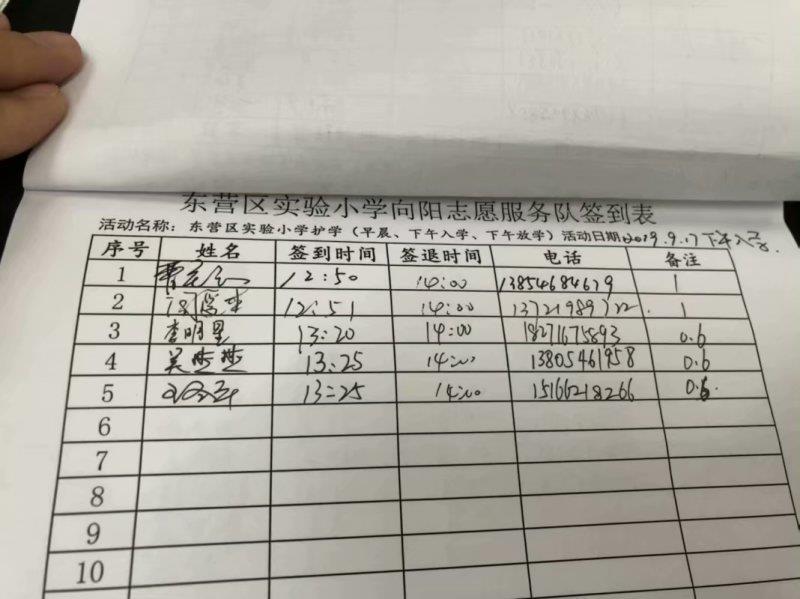 东营区实验小学向阳志愿服务队签到表
活动名称：东营区实验小学护学（早晨、下午入学、下午放学）活动日期2019.9.17下午入学.
序号 姓名 签到时间 签退时间 电话 备注
1 12:50 14:00 13854684679 1
2 12:51 14:00 13721989722. 1
3 李明星 13:20 14:00 18271675893 0.6
4 吴燕燕 13:25 14:00 13805461958 0.6
5 13:25 14:00 15166218266 0.6
6
7
8
9
10